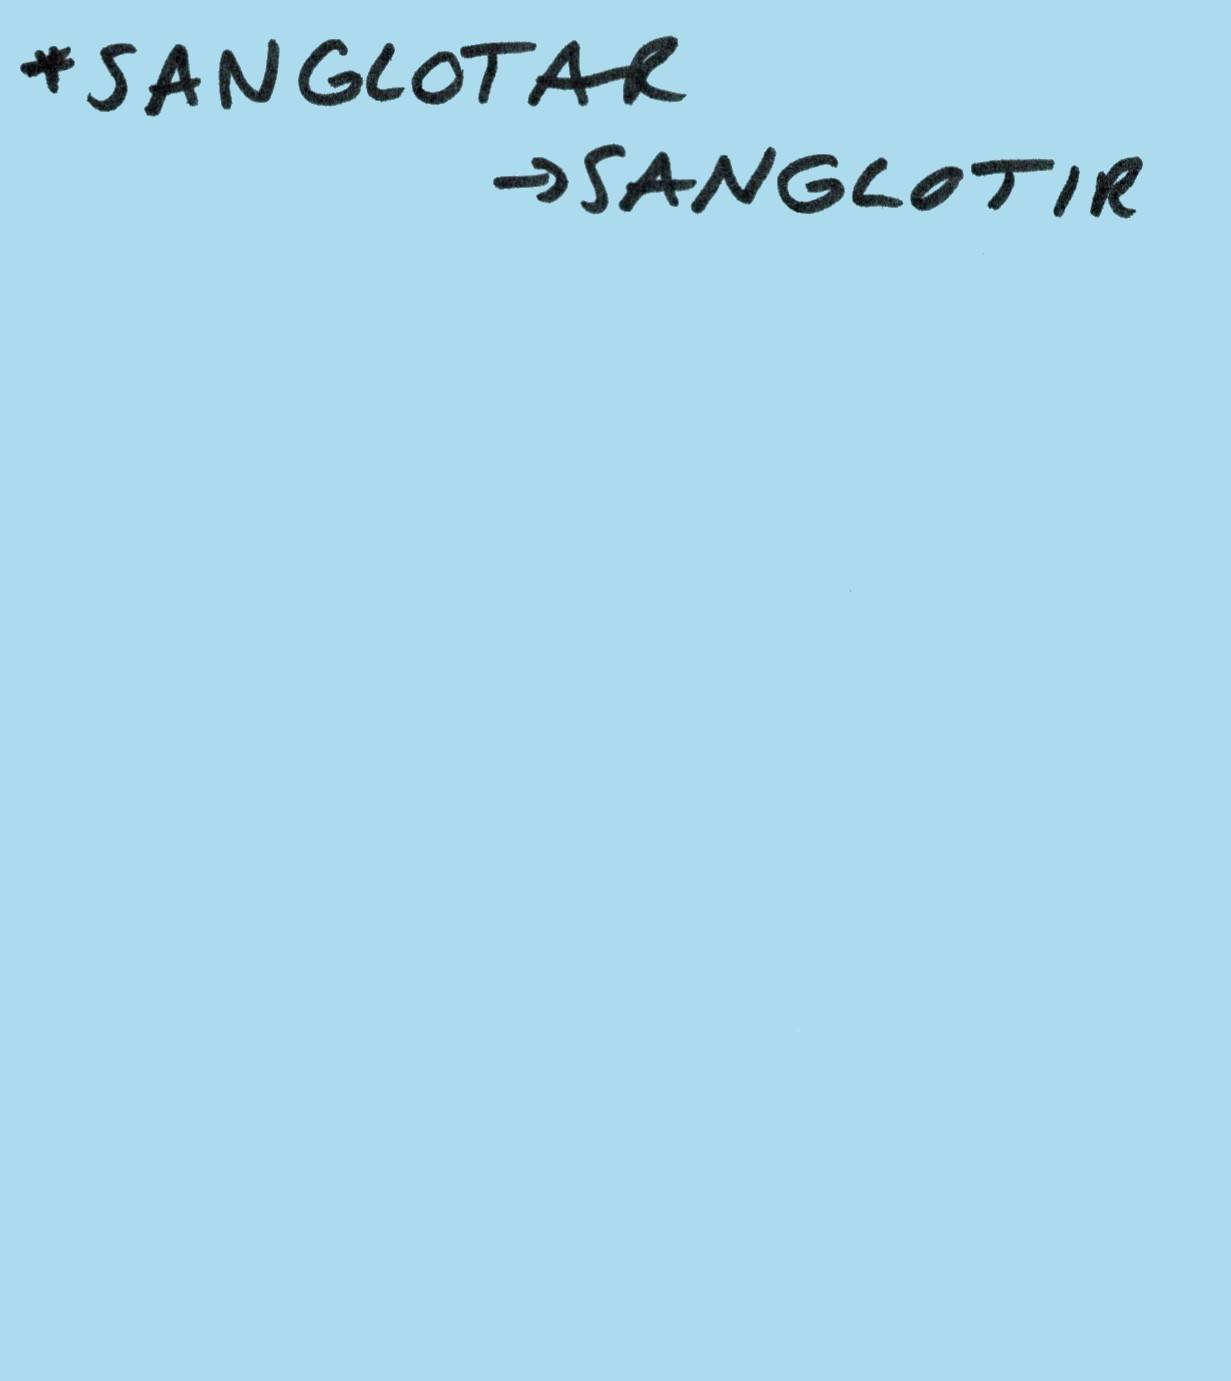 *SANGLOTAR
→SANGLOTIR